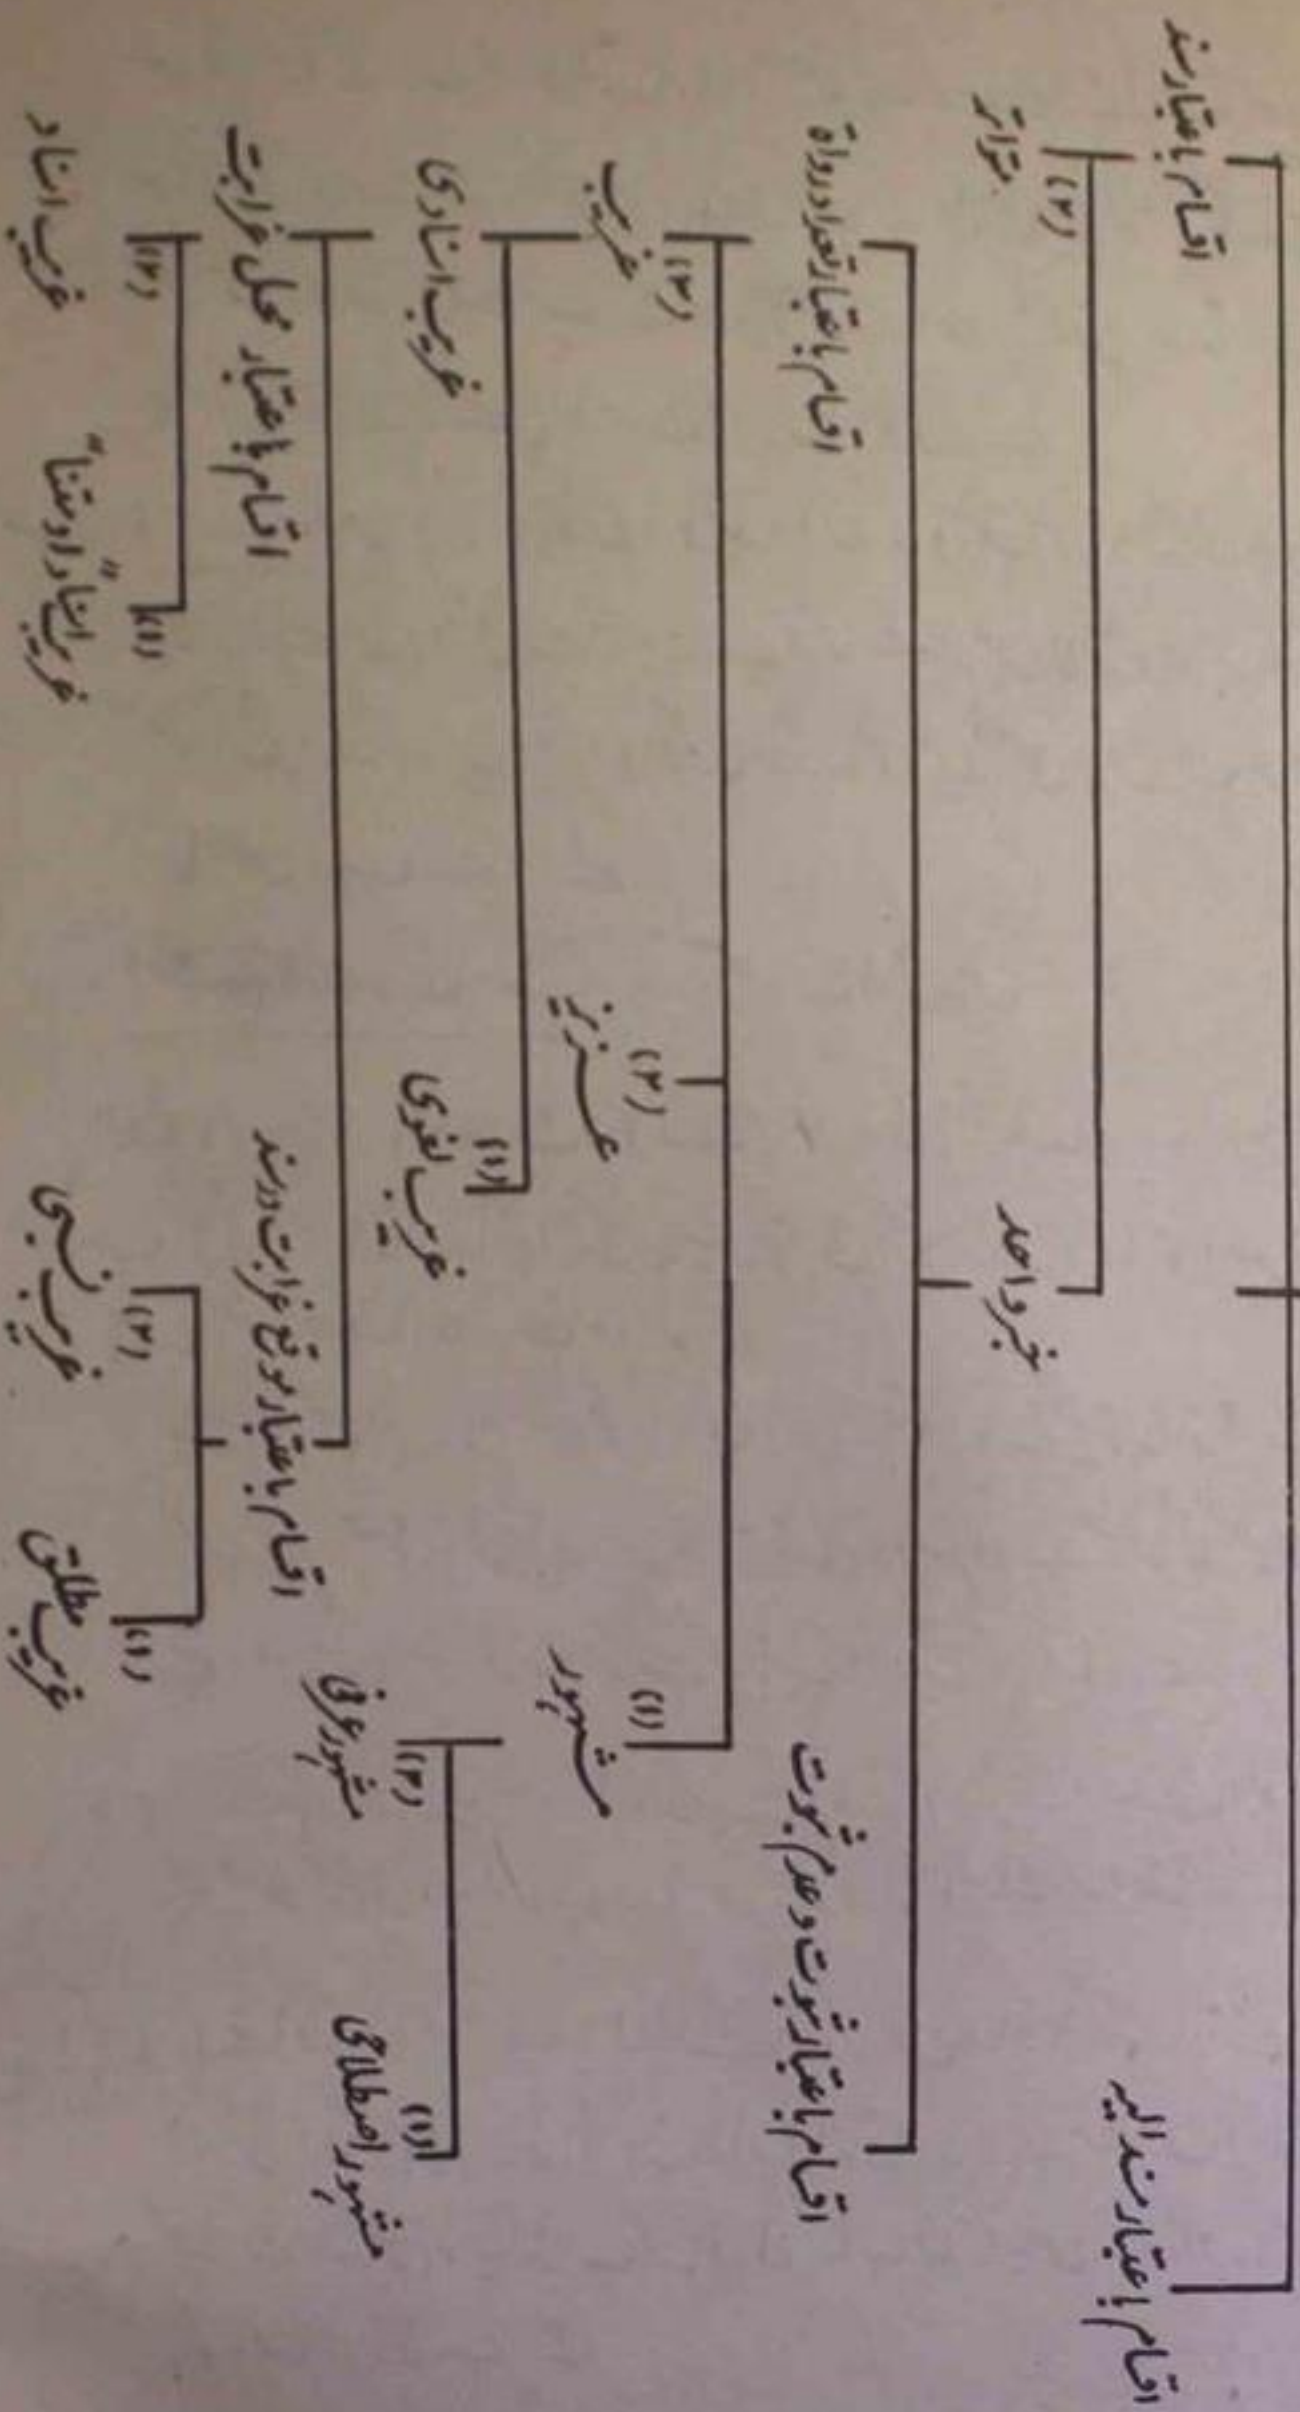 اقسام باعتبار مسند الیہ
اقسام باعتبار سند
خبر واحد
(۲)
متواتر
اقسام باعتبار ثبوت و عدم ثبوت
اقسام باعتبار تعداد رواۃ
(۱)
مشہور
(۲)
عزیز
(۳)
غریب
(۱)
مشہور اصطلاحی
(۲)
مشہور عرفی
(۱)
غریب لغوی
غریب اسنادی
اقسام باعتبار موقع غرابت در سند
اقسام باعتبار محل غرابت
(۱)
غریب مطلق
(۲)
غریب نسبی
(۱)
غریب اسناداً و متناً
(۲)
غریب اسناد